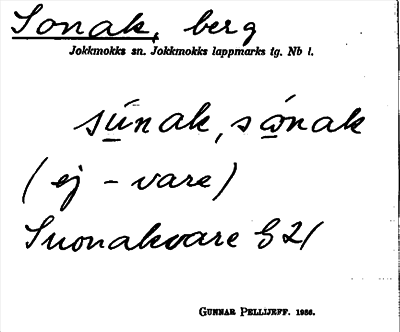 Sonak, berg
Jokkmokks sn. Jokkmokks lappmarks tg. Nb l.
sú̱nak, só̱nak
(ej - vare)
Suonakvare G 21
GUNNAR PELLIJEFF. 1986.